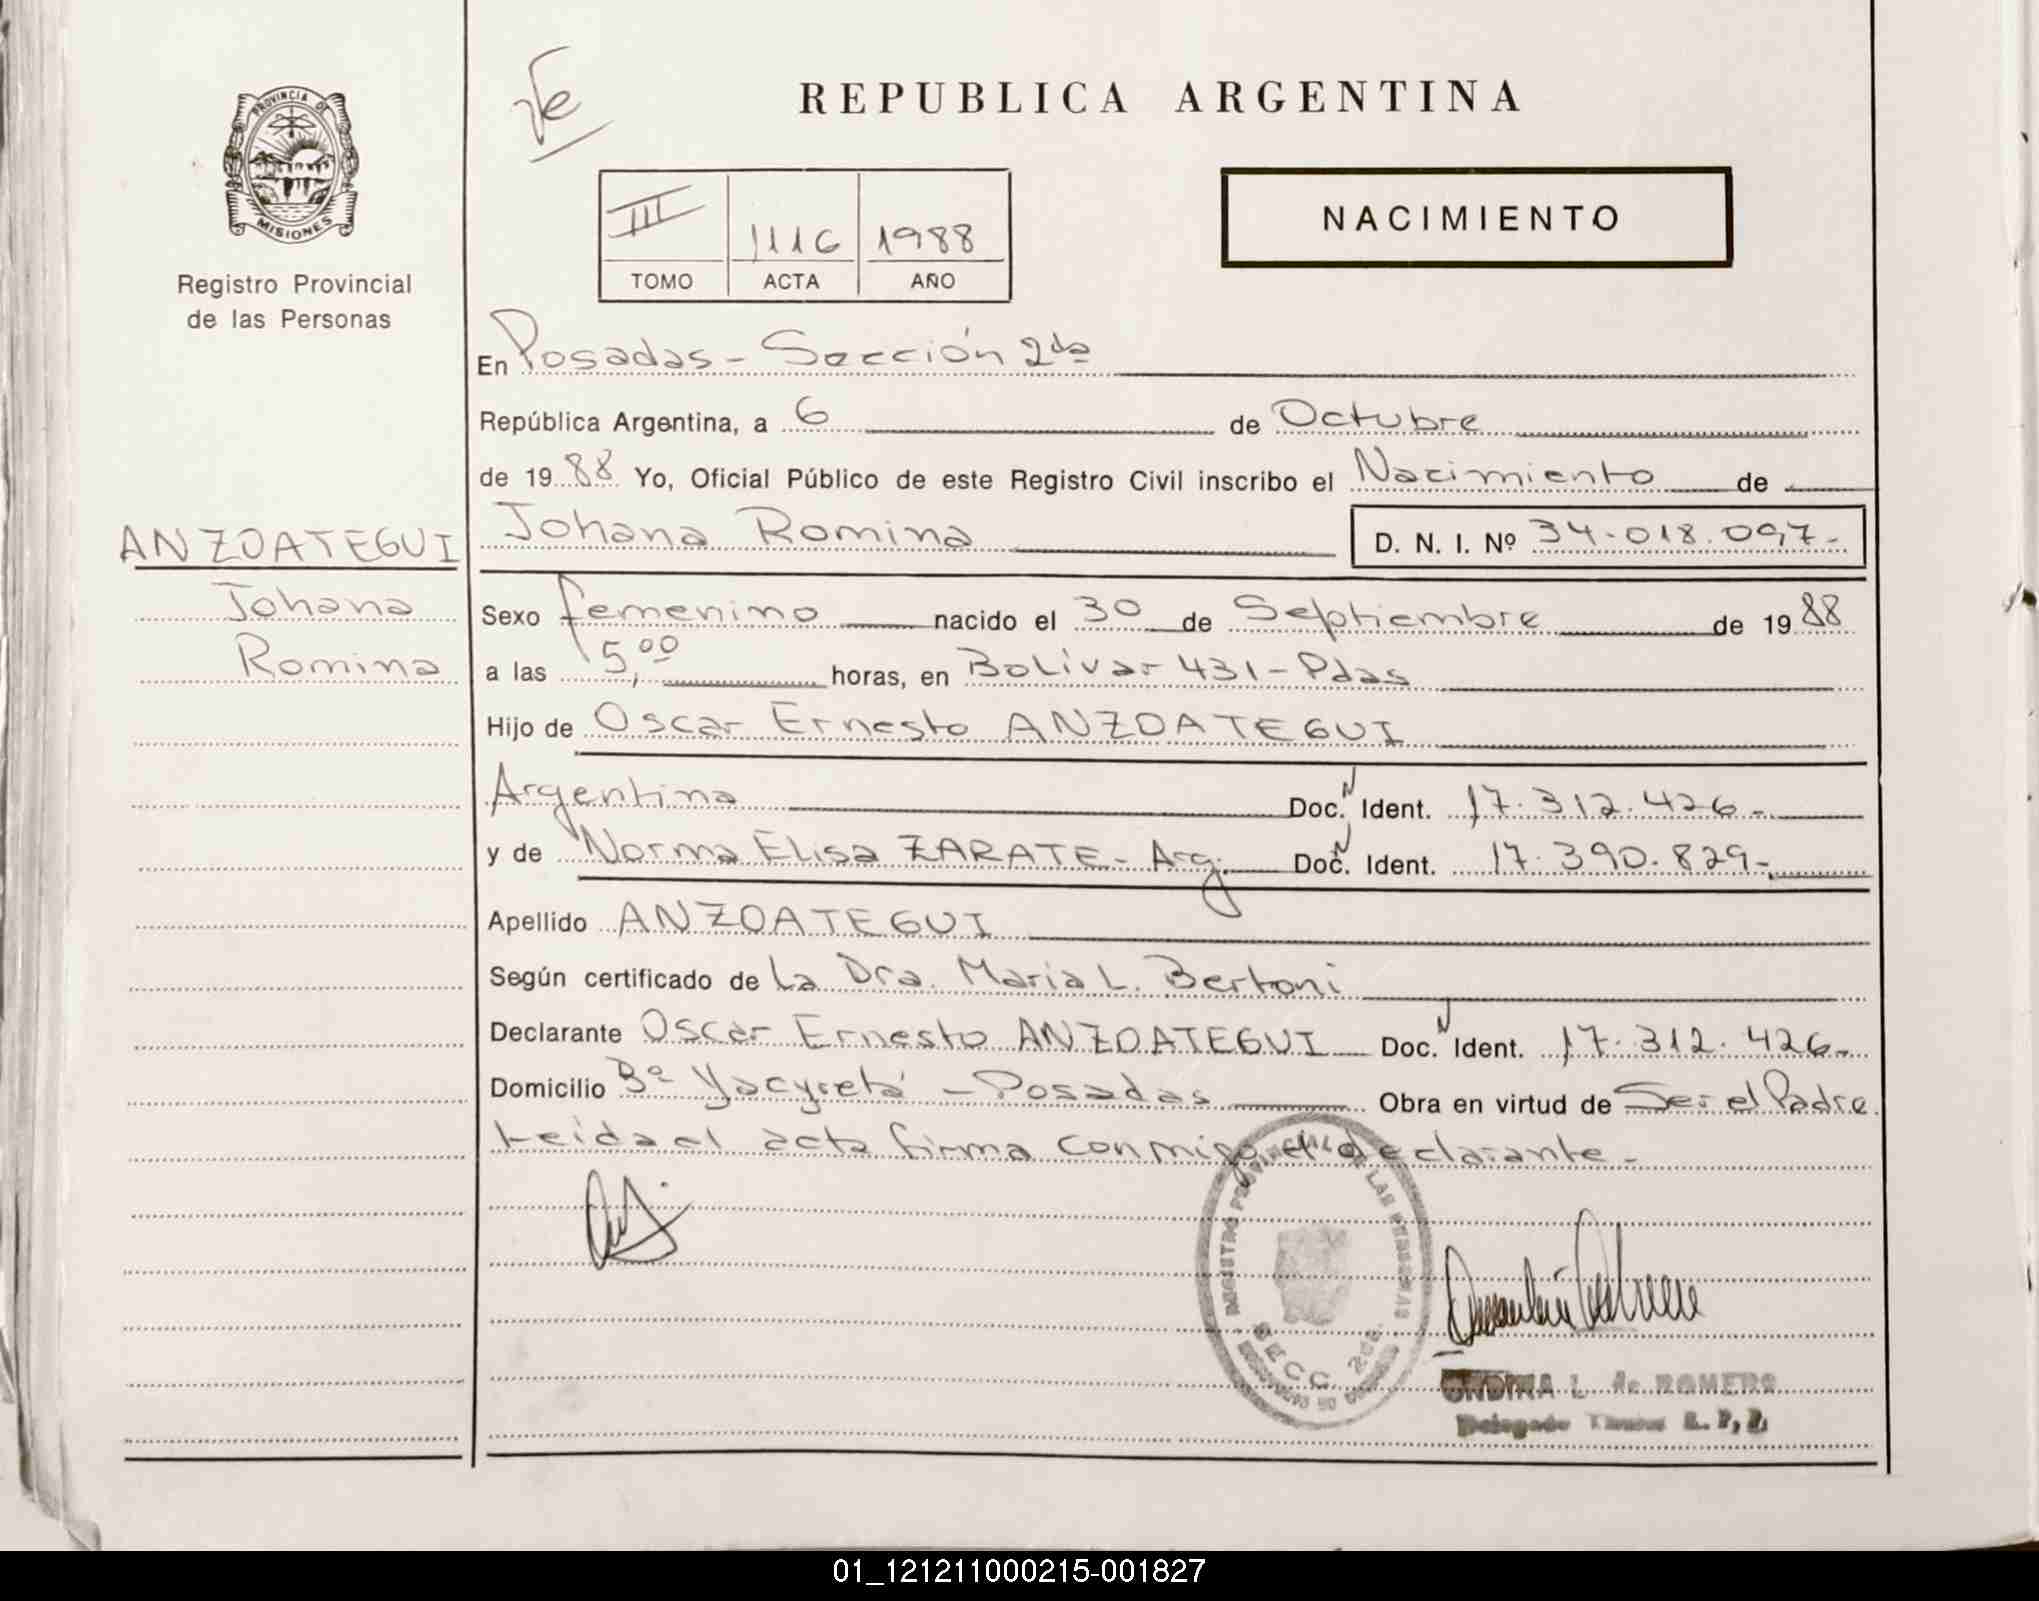 REPUBLICA ARGENTINA
PROVINCIA DE
MISIONES
Registro Provincial
de las Personas
III 1116 1988
TOMO ACTA AÑO
NACIMIENTO
En Posadas - Sección 2da
República Argentina, a 6 de Octubre
de 1988 Yo, Oficial Público de este Registro Civil inscribo el Nacimiento de
ANZOATEGUI
Johana
Romina
Johana Romina D. N. I. Nº 34.018.097-
Sexo femenino nacido el 30 de Septiembre de 1988
a las 5,00 horas, en Bolívar 431 - Pdas
Hijo de Oscar Ernesto ANZOATEGUI
Argentina Doc. N Ident. 17.312.426-
y de Norma Elisa ZARATE - Arg. Doc. N Ident. 17.390.829-
Apellido ANZOATEGUI
Según certificado de La Dra. Maria L. Bertoni
Declarante Oscar Ernesto ANZOATEGUI Doc. N Ident. 17.312.426-
Domicilio Bº Yacyretá - Posadas Obra en virtud de Ser el Padre
Leida el acta firma conmigo el declarante -
REGISTRO PROVINCIAL DE LAS PERSONAS
SECC. 2da.
ONDINA L. de ROMERO
Delegado Titular R. P. P.
01_121211000215-001827